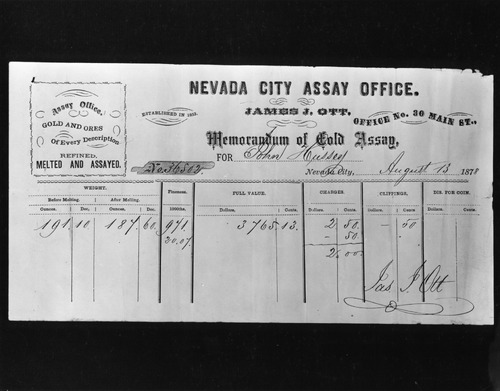 NEVADA CITY ASSAY OFFICE.
JAMES J. OTT,
ESTABLISHED IN
OFFICE No. 30 MAIN ST.,
Assay Office.
GOLD AND ORES
Of Every Description
REFINED,
MELTED AND ASSAYED.
Memorandum of Gold Assay,
FOR John Hussey
No.
Nevada City, August 13 1878
WEIGHT. Fineness. FULL VALUE. CHARGES. CLIPPINGS. DIS. FOR COIN.
Before Melting. After Melting. 1000ths.
Ounces. Dec. Ounces. Dec. Dollars. Cents. Dollars. Cents. Dollars. Cents Dollars. Cents
191 10 187 60 971 3765 13. 2 50. — 50
20.07. — 50.
2 00
Jas J. Ott